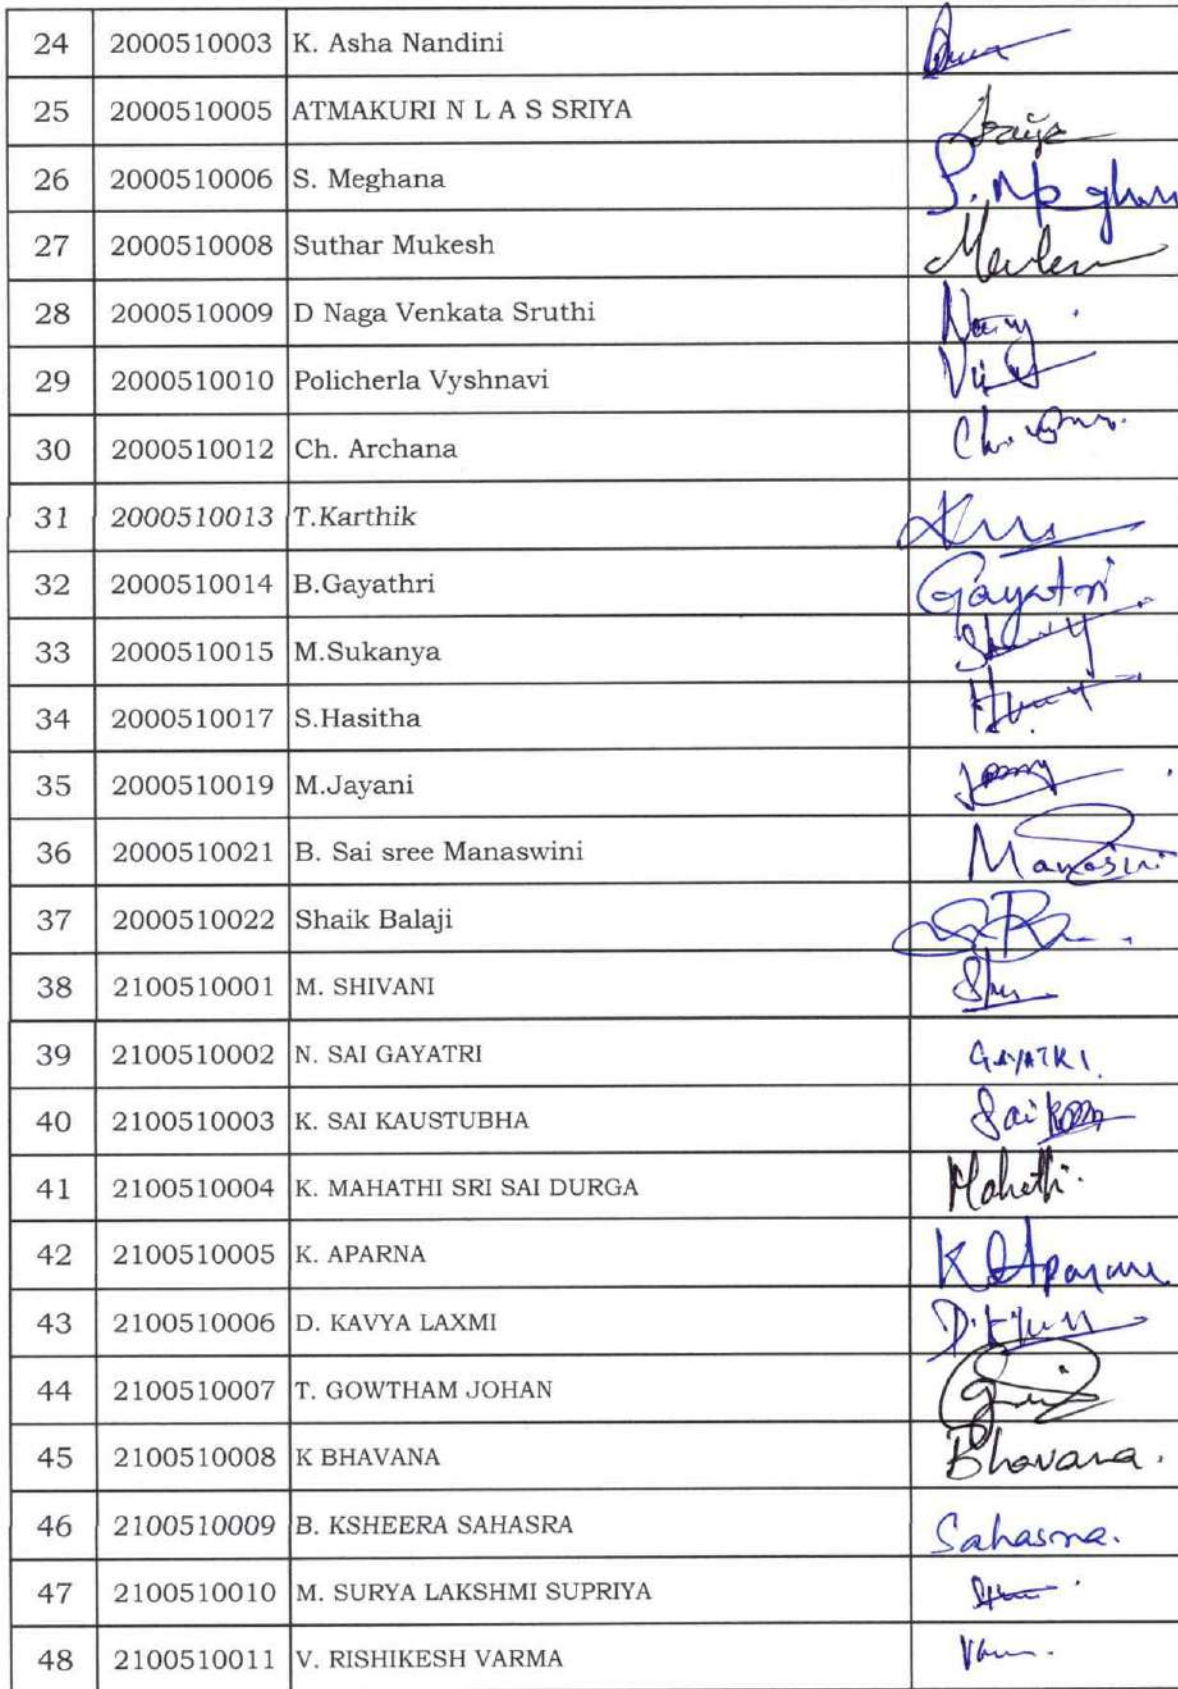 24 2000510003 K. Asha Nandini
25 2000510005 ATMAKURI N L A S SRIYA Sriya
26 2000510006 S. Meghana
27 2000510008 Suthar Mukesh
28 2000510009 D Naga Venkata Sruthi
29 2000510010 Policherla Vyshnavi
30 2000510012 Ch. Archana
31 2000510013 T.Karthik
32 2000510014 B.Gayathri Gayatri
33 2000510015 M.Sukanya
34 2000510017 S.Hasitha
35 2000510019 M.Jayani
36 2000510021 B. Sai sree Manaswini
37 2000510022 Shaik Balaji
38 2100510001 M. SHIVANI
39 2100510002 N. SAI GAYATRI GAYATRI
40 2100510003 K. SAI KAUSTUBHA Sai
41 2100510004 K. MAHATHI SRI SAI DURGA Mahathi.
42 2100510005 K. APARNA K Aparna
43 2100510006 D. KAVYA LAXMI
44 2100510007 T. GOWTHAM JOHAN
45 2100510008 K BHAVANA Bhavana.
46 2100510009 B. KSHEERA SAHASRA Sahasra.
47 2100510010 M. SURYA LAKSHMI SUPRIYA
48 2100510011 V. RISHIKESH VARMA